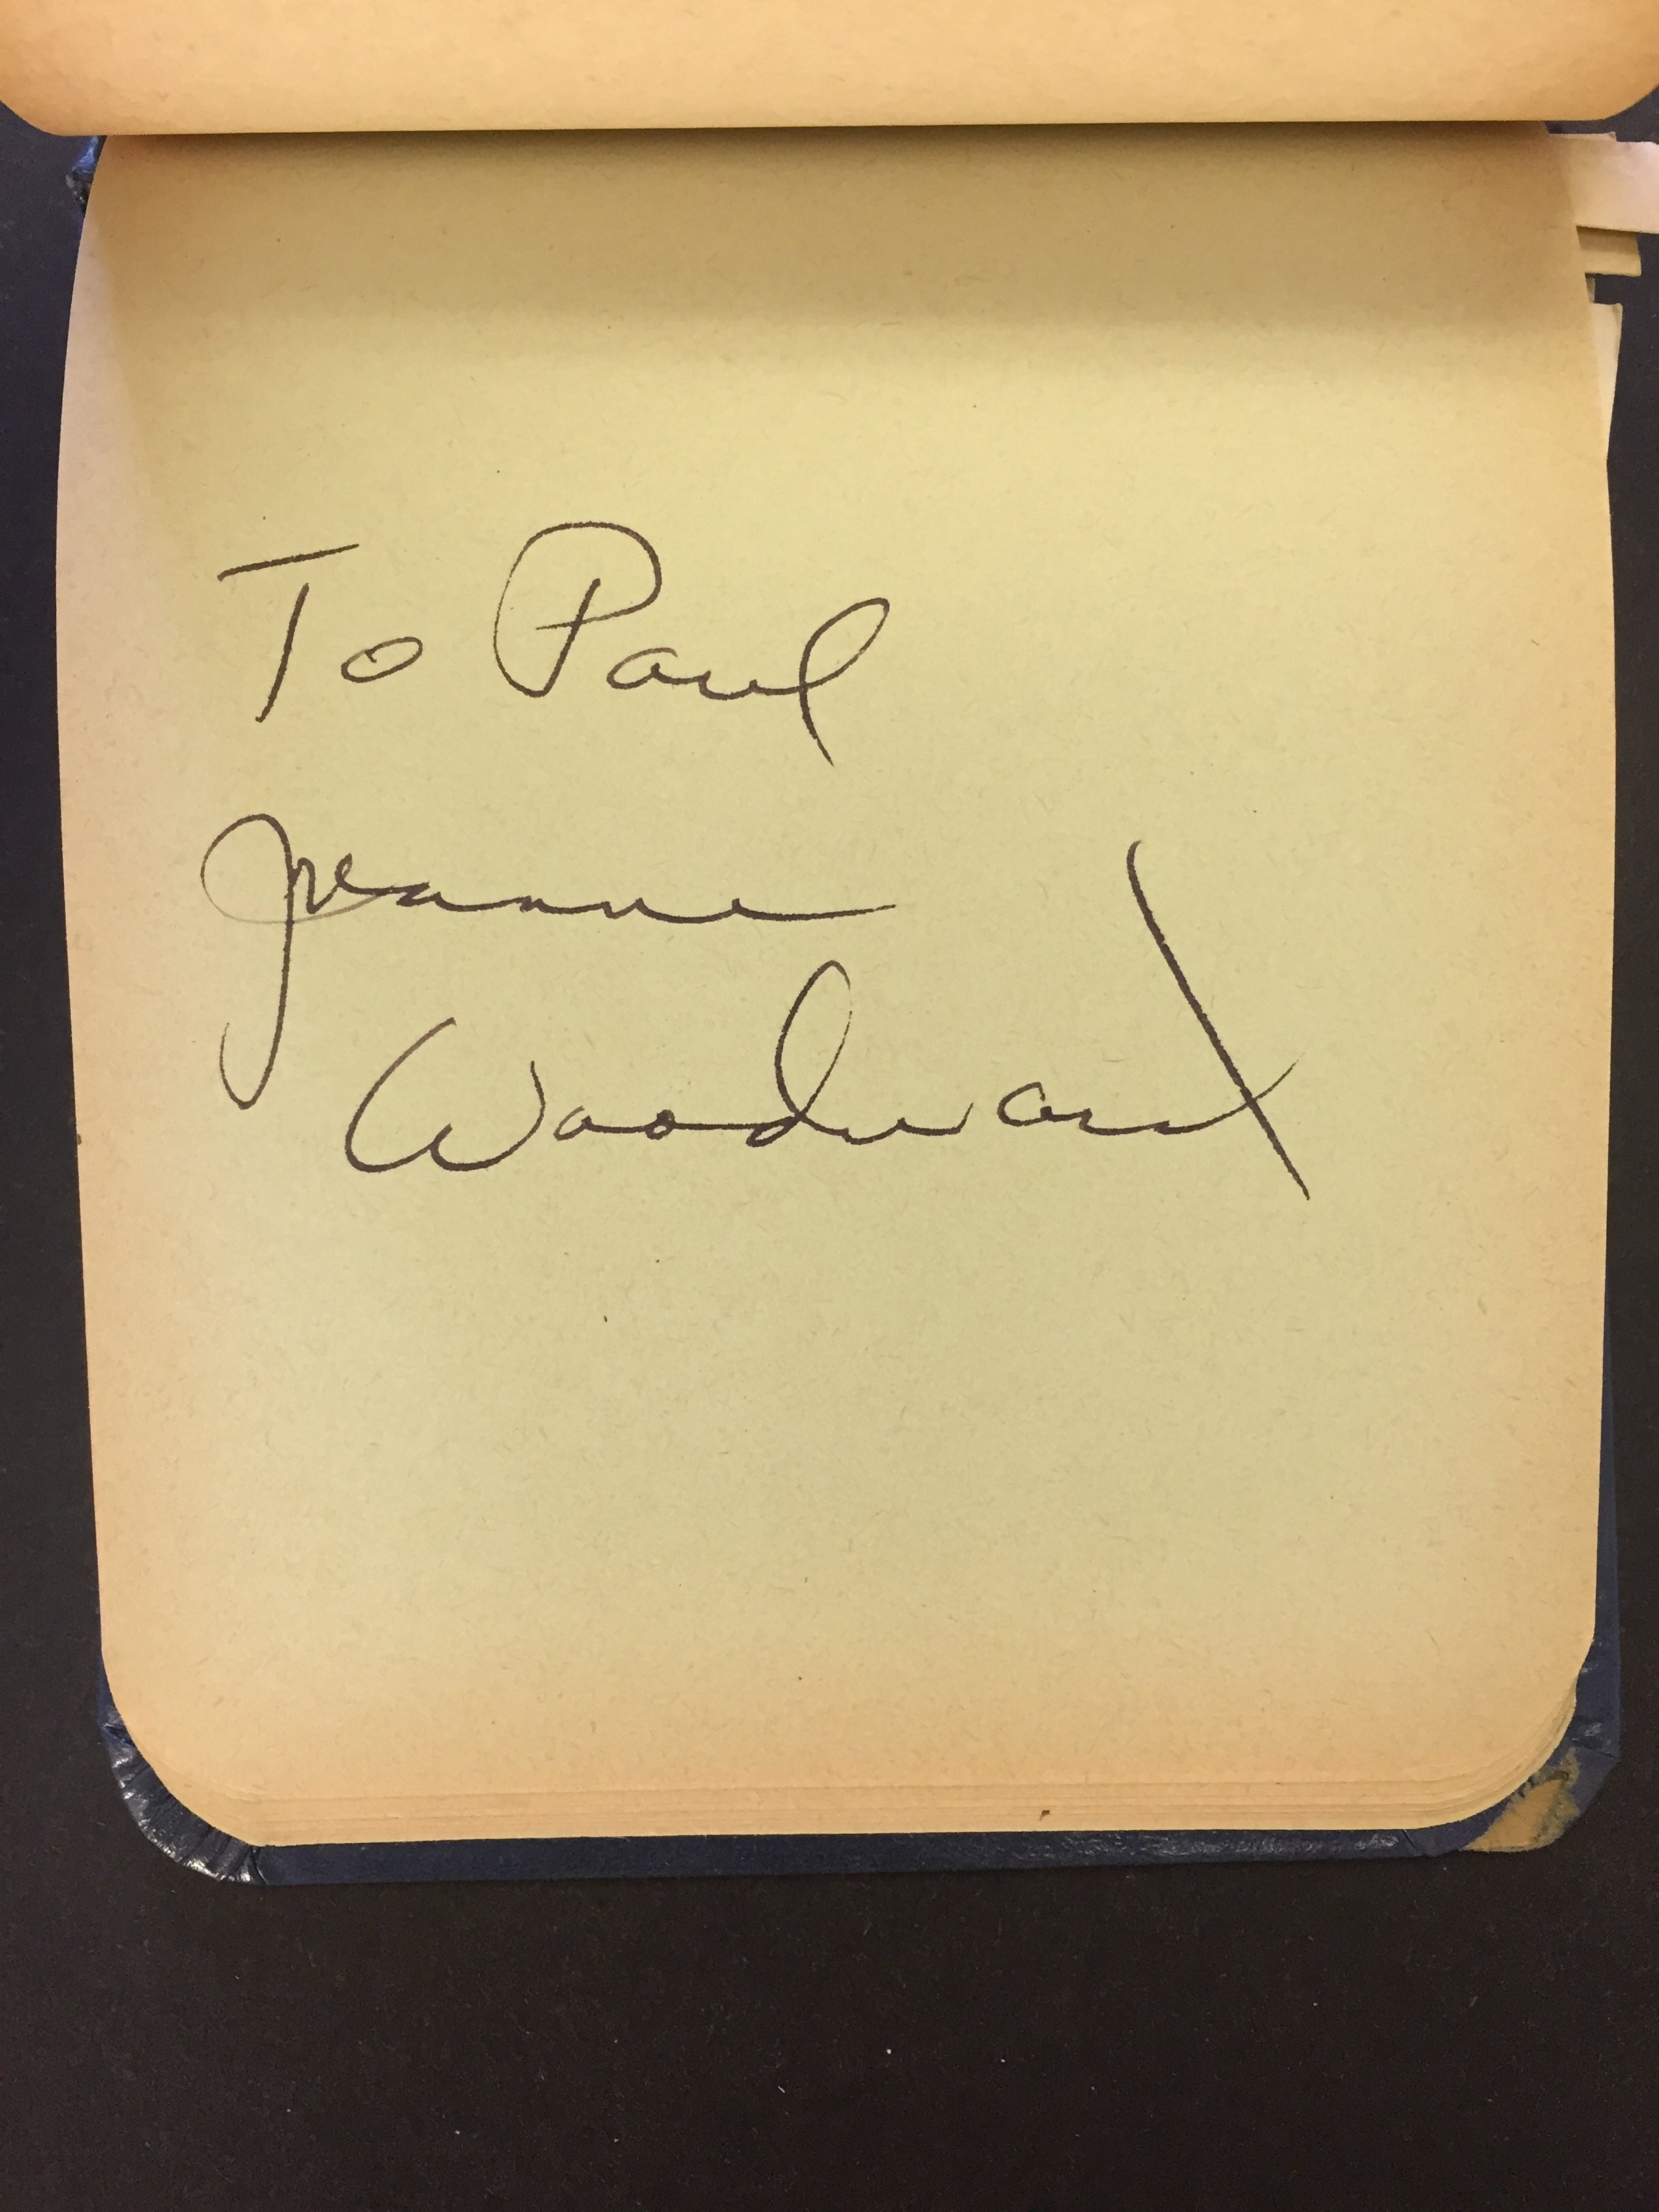 To Paul
Joanne
Woodward